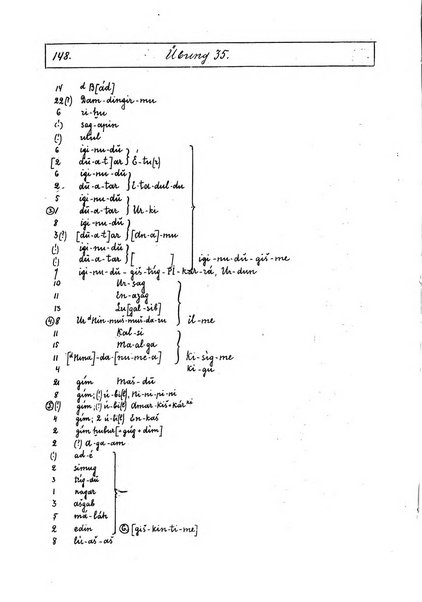 148. Übung 35.
14 d B[ád]
22(!) Dam-dingir-mu
6 ri-ḫu
(!) sag-apin
(!) utul
6 igi-nu-dŭ
[2 dŭ-a-t]ar É-tu(r)
6 igi-nu-dŭ
2 dŭ-a-tar É-ta-dul-du
5 igi-nu-dŭ
③1 dŭ-a-tar Ur-ki
8 igi-nu-dŭ
3(!) [dŭ-a-t]ar [dn-a]-mu
(!) igi-nu-dŭ
(!) dŭ-a-tar [ ] igi-nu-dŭ-giš-me
1 igi-nu-dŭ-giš-túg-PI-kar-rá, Ur-dun
10 Ur-sag
11 En-azag
13 Lu[gal-sib]
④8 Ur ᵈNin-muš-muš-da-ru íl-me
11 Kal-si
15 Ma-al-ga
11 [ᵈNina]-da-[nu-me-a] Ki-síg-me
4 ki-gu
21 gím Maš-dŭ
8 gím; (!) ú-bí(l), Ni-ni-ni-ni
⑤(!) gím; (!) ú-bí(l) Amar-Kiš+Kár ᵏⁱ
4 gím; 2 ú-bí(l) En-kaš
2 gím ḫubur[+gúg+dím]
2 (!) a-ga-am
(!) ad-é
2 simug
3 túg-du
1 nagar
3 ašgab
5 má-laḫ
2 edin ⑥ [giš-kin-ti-me]
8 lù-aš-aš